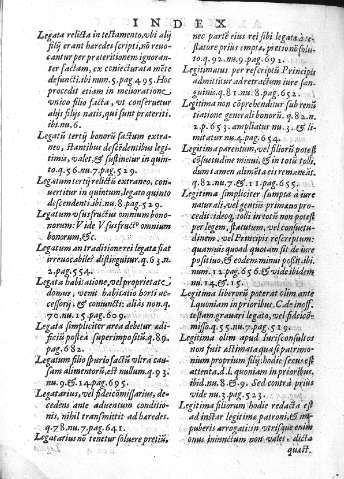 INDEX
Legata relicta in testamento, vbi alij
filij erant haredes scripti, nō reuo-
cantur per prateritionem ignoran-
ter factam, ex coniecturata mēte
defuncti. ibi num. 5. pag. 495. Hoc
procedit etiam in melioratione
vnico filio facta, vt conseruetur
alijs filijs natis, qui sunt prateriti
ibi. nu. 6.
Legatū tertij bonorū factum extra-
neo, stantibus descēdentibus legi-
timis, valet, & sustinetur in quin-
to. q. 56. nu. 7. pag. 529.
Legatum tertij relictū extraneo, con-
uertitur in quintum, legato quinto
descendenti. ibi nu. 8. pag. 529.
Legatum vsusfructus omnium bono-
norum: Vide Vsusfructus omnium
bonorum, &c.
Legatum an traditione rei legata fiat
irreuocabile? distinguitur. q. 63. n.
2. pag. 554.
Legata habitatione, vel proprietate
domus, venit habitatio horti ac-
cessorij, & coniuncti: alias non. q.
70. nu. 15. pag. 609.
Legata simpliciter area debetur adi-
ficiū postea superimpositū. q. 89.
pag. 682.
Legatum filio spurio factū vltra cau-
sam alimentorū, est nullum. q. 93.
nu. 9. & 14. pag. 695.
Legatarius, vel fideicōmissarius, de-
cedens ante aduentum conditio-
nis, nihil transmittit ad haredes.
q. 78. nu. 7. pag. 641.
Legatarius nō tenetur soluere pretiū,
nec partē eius rei sibi legata à te-
statore prius empta, pretio nō solu-
to. q. 92. nu. 9. pag. 691.
Legitimatus per rescriptū Principis
admittitur ad retractum iure san-
guinis. q. 81. nu. 8. pag. 652.
Legitima non cōprehenditur sub renū
tiatione generali bonorū. q. 82. n.
2. p. 653. ampliatur nu. 3. & li-
mitat nu. 4. pag. 654.
Legitima parentum, vel filiorū potest
cōsuetudine minui, & in totū tolli,
dum tamen alimēta eis remaneāt.
q. 82. nu. 7. & 11. pag. 655.
Legitima simpliciter sumpta à iure
naturali, vel gentium primauo pro-
cedit: ideoq; tolli in totū non potest
per legem, statutum, vel consuetu-
dinem, vel Principis rescriptum:
quamuis quoad quotam sit de iure
positiuo, & eodem minui possit. ibi.
num. 12. pag. 656. & vide ibidem
nu. 14. & 15.
Legitima liberorū poterat olim ante
l. quoniam in prioribus. C. de inoff.
testam. grauari legato, vel fideicō-
misso. q. 55. nu. 7. pag. 529.
Legitima olim apud iurisconsultos
non fuit astimata quasi patrimo-
nium proprium filij: hodie secus est
attenta. d. l. quoniam in prioribus,
ibid. nu. 8. & 9. Sed contra prius
vide nu. 3. pag. 523.
Legitima filiorum hodie redacta est
ad instar legitima patroni, & im-
puberis arrogati: in vtrisque enim
onus iniunctum non valet. dicta
quæst.